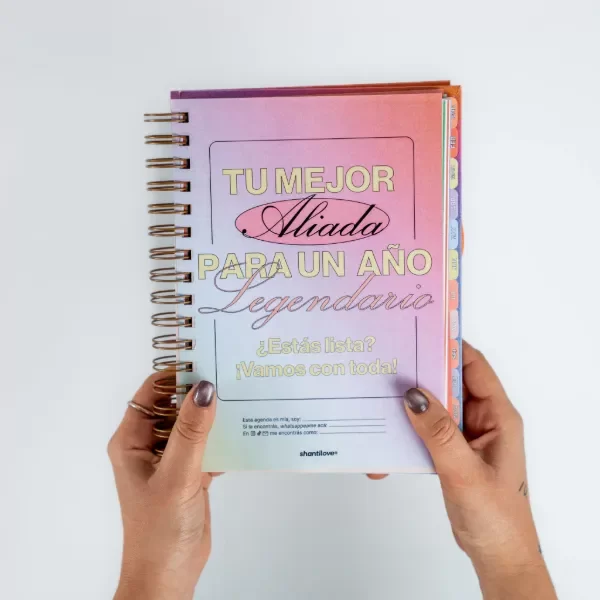 TU MEJOR
Aliada
PARA UN AÑO
Legendario
¿Estás lista?
¡Vamos con toda!
Esta agenda en mía, soy:
Si te encontrás, whatsappeame acá:
En me encontrás como:
shantilove